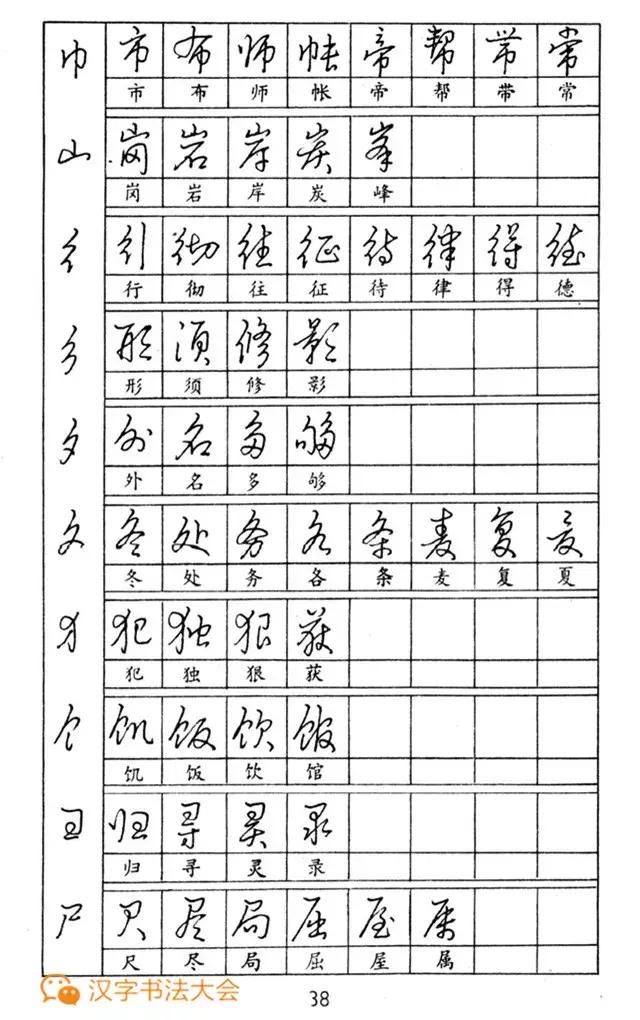 巾 市 布 师 帐 帝 帮 带 常
市 布 师 帐 帝 帮 带 常
山 岗 岩 岸 炭 峰
岗 岩 岸 炭 峰
彳 行 彻 往 征 待 律 得 德
行 彻 往 征 待 律 得 德
彡 形 须 修 影
形 须 修 影
夕 外 名 多 够
外 名 多 够
夂 冬 处 务 各 条 麦 复 夏
冬 处 务 各 条 麦 复 夏
犭 犯 独 狠 获
犯 独 狠 获
饣 饥 饭 饮 馆
饥 饭 饮 馆
彐 归 寻 灵 录
归 寻 灵 录
尸 尺 尽 局 屈 屋 属
尺 尽 局 屈 屋 属
汉字书法大会
38